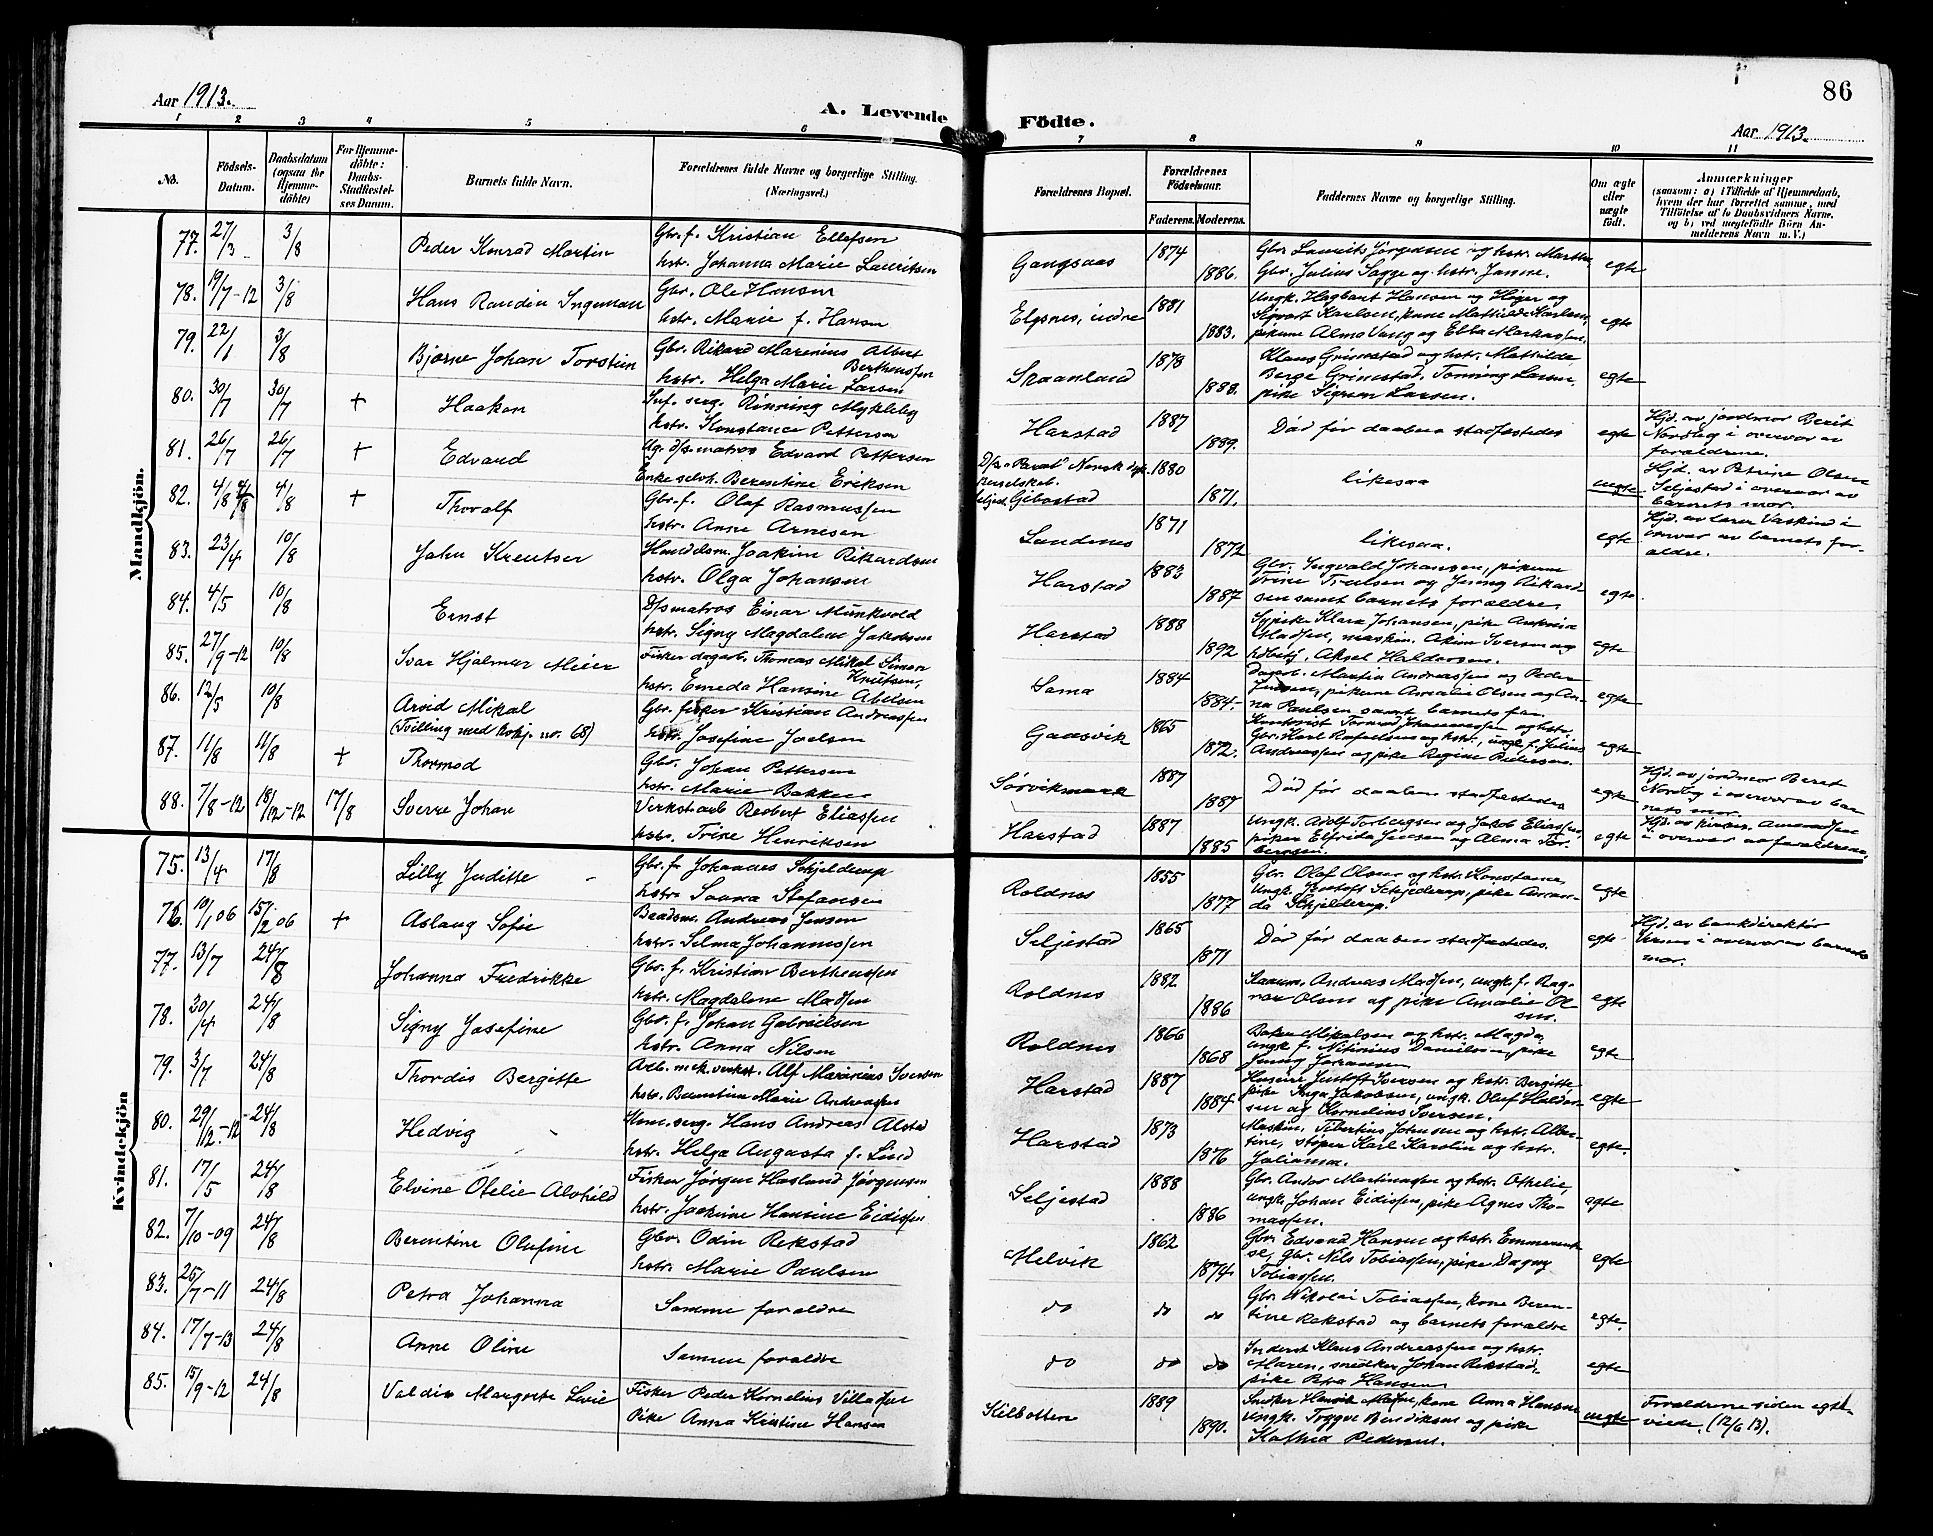 Aar 1913.
A. Levende
Födte.
Aar 1913.
86
1 2 3 4 5 6 7 8 9 10 11
No.
Födsels-Datum.
Daabsdatum (ogsaa for Hjemmedöbte)
For Hjemmedöbte: Daabs-Stadfæstelses Datum.
Barnets fulde Navn.
Forældrenes fulde Navne og borgerlige Stilling. (Næringsvei.)
Forældrenes Bopæl.
Forældrenes Födselsaar.
Faderens. Moderens.
Faddernes Navne og borgerlige Stilling.
Om ægte eller uægte födt.
Anmærkninger
(saasom: a) i Tilfælde af Hjemmedaab, hvem der har forrettet samme, med Tilföielse af to Daabsvidners Navne, og b) ved uægtefödte Börn Anmelderens Navn m.V.)
Mandkjön.
77. 27/3 3/8 Peder Konrad Martin Gbr. f. Kristian Ellefsen
hstr. Johanna Marie Lauritsen
Gangsaas 1874 1886. Gbr. Laurits Jørgensen og hstr. Marthe,
Gbr. Julius Sagge og hstr. Janne. egte
78. 19/7-12 3/8 Hans Randin Ingeman Gbr. Ole Hansen
hstr. Marie f. Hansen
Elgsnes, indre 1881 1883. Ungk. Hagbart Hansen og Høier og
Sigvart Karlsen, kone Mathilde Karlsen,
pikene Alma Vang og Ebba Markussen. egte
79. 22/1 3/8 Bjarne Johan Torstein Gbr. Rikard Marenius Albert
Bertheussen
hstr. Helga Marie Larsen
1878 1888. Klaus Grimestad og hstr. Mathilde,
Berge Grimestad, Larsen,
pike Sigrun Larsen. egte
80. 30/7 30/7 + Haakon Inf. serg. Rønning Myklebog
hstr. Konstance Pettersen
Harstad 1887 1889. Død før daaben stadfestedes egte
Hjd. av jordmor Berit
Nordbog i overvær av
forældrene.
81. 26/7 26/7 + Edvard Ug. d/s. matros Edvard Pettersen
Enke selvh. Berentine Eriksen
Gibostad 1880 1871. likesaa uegte
Hjd. av Petrine Olsen
Seljestad i overvær av
barnets mor.
82. 4/8 4/8 + Thoralf Gbr. f. Olaf Rasmussen
hstr. Anne Arnesen
Sandnes 1871 1872 likesaa. egte
Hjd. av lærer Vaskind i
overvær av barnets forældre.
83. 23/4 10/8 John Kreutser Handelsm. Joakim Rikardsen
hstr. Olga Johansen
Harstad 1883 1887 Gbr. Ingvald Johansen, pikene
Trine Truelsen og Jenny Rikardsen
samt barnets forældre egte.
84. 4/5 10/8 Ernst D/smatros Einar Munkvold
hstr. Signy Magdalene Jakobsen
Harstad 1888 1892 Sypike Klara Johansen, pike
Madsen, maskin. Akim Iversen og
Aksel Haldorsen. egte
85. 27/9-12 10/8 Ivar Hjalmar Meier Fisker dagarb. Thomas Mikal Simon
Knutsen,
hstr. Emeda Hansine Abelsen
Sama 1884 1884 Dagarb. Martin Andreassen og Peder
Jensen, pikene Amalie Olsen og Anna
Paulsen samt barnets far. egte
86. 12/5 10/8 Arvid Mikal
(Tvilling med kvkj. nr. 68)
Gbr. fisker Kristian Andreassen
hstr. Josefine Joelsen
Gausvik 1865 1872. Tormod Johannessen og hstr.
Gbr. Karl Rafaelsen og hstr., ungk. f. Julius
Andreassen og pike Regine Pedersen. egte
87. 11/8 11/8 + Thormod Gbr. Johan Pettersen
hstr. Marie Bakken
Sørvikmark 1887 1887 Død før daaben stadfestedes egte
Hjd. av jordmor Beret
Nordbog i overvær av barnets
mor.
88. 7/8-12 18/12-12 17/8 Sverre Johan Verkstarb. Robert Eliassen
hstr. Trine Henriksen
Harstad 1887 1885 Ungk. Adolf Torbergsen og Jakob Eliassen,
piken Elfrida Jensen og Alma Torbergsen. egte
i overvær av forældrene.
Kvindekjön
75. 13/4 17/8 Lilly Juditte Gbr. f. Johannes Schjelderup
hstr. Stefansen
Roldnes 1855 1877 Gbr. Olaf Olsen og hstr. Konstance,
Ungk. Gustoft Schjelderup, pike Amanda
Schjelderup. egte
76. 10/1 06 15/2 06 + Aslaug Sofie Baadsm. Andreas Jensen
hstr. Selma Johannessen
Seljestad 1865 1871 Død før daaben stadfestedes. egte
Hjd. av bankdirektør
i overvær av barnets
mor.
77. 13/7 24/8 Johanna Fredrikke Gbr. f. Kristian Bertheussen
hstr. Magdalene Madsen
Roldnes 1882 1886 Andreas Madsen, ungk. f. Ragnar
Olsen og pike Amalie Olsen. egte
78. 30/4 24/8 Signy Josefine Gbr. f. Johan Gabrielsen
hstr. Anna Nilsen
Roldnes 1866 1868 Mikalsen og hstr. Magda,
ungk. f. Nitinius Danielsen, pike
Jenny Johansen egte
79. 3/7 24/8 Thordis Bergitte Arb. mek. verkst. Alf Marinius Iversen
hstr. Berentine Marie Andreassen
Harstad 1887 1884 Gustoft Iversen og hstr. Bergitte
pike Inga Jakobsen, ungk. Oluf Haldorsen
og Kornelius Iversen. egte
80. 29/12-12 24/8 Hedvig Kom. serg. Hans Andreas Alstad
hstr. Helga Augusta f. Lind
Harstad 1873 1876 Maskin. Tibertius Johnsen og hstr. Albertine,
støper Karl Karolin og hstr.
Julianna. egte.
81. 17/5 24/8 Elvine Otelie Alvhild Fisker Jørgen Hasland Jørgensen
hstr. Joakime Hansine Eidissen
Seljestad 1888 1886 Gbr. Andor Martinussen og hstr. Othelie,
ungk. Johan Eidissen, pike Agnes Thomassen. egte
82. 7/10-09 24/8 Berentine Olufine Gbr. Odin Rekstad
hstr. Marie Paulsen
Melvik 1862 1874 Gbr. Edvard Hansen og hstr. Emmerentse,
gbr. Nils Tobiassen, pike Dagny
Tobiassen. egte
83. 25/7-11 24/8 Petra Johanna Samme forældre
do do do Gbr. Nikolai Tobiassen, kone Berentine
Rekstad og barnets forældre egte.
84. 17/7-13 24/8 Anne Oline Samme forældre
do do do Inderst Klaus Andreassen og hstr.
Maren, snedker Johan Rekstad,
pike Petra Hansen egte
85. 15/9-12 24/8 Valdis Margrete Lovie Fisker Peder Kornelius Villassen
Pike Anna Kristine Hansen
Kilbotten 1889 1890. kone Anna Hansen
Ungk. Trygve Bendiksen og pike
Kathed Pedersen. uegte
Forældrene siden egteviede.
(12/6 13).